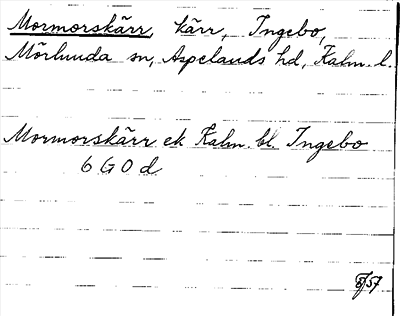 Mormorskärr, kärr, Ingebo,
Mörlunda sn, Aspelands hd, Kalm. l.
Mormorskärr ek Kalm. bl. Ingebo
6 G 0 d
57